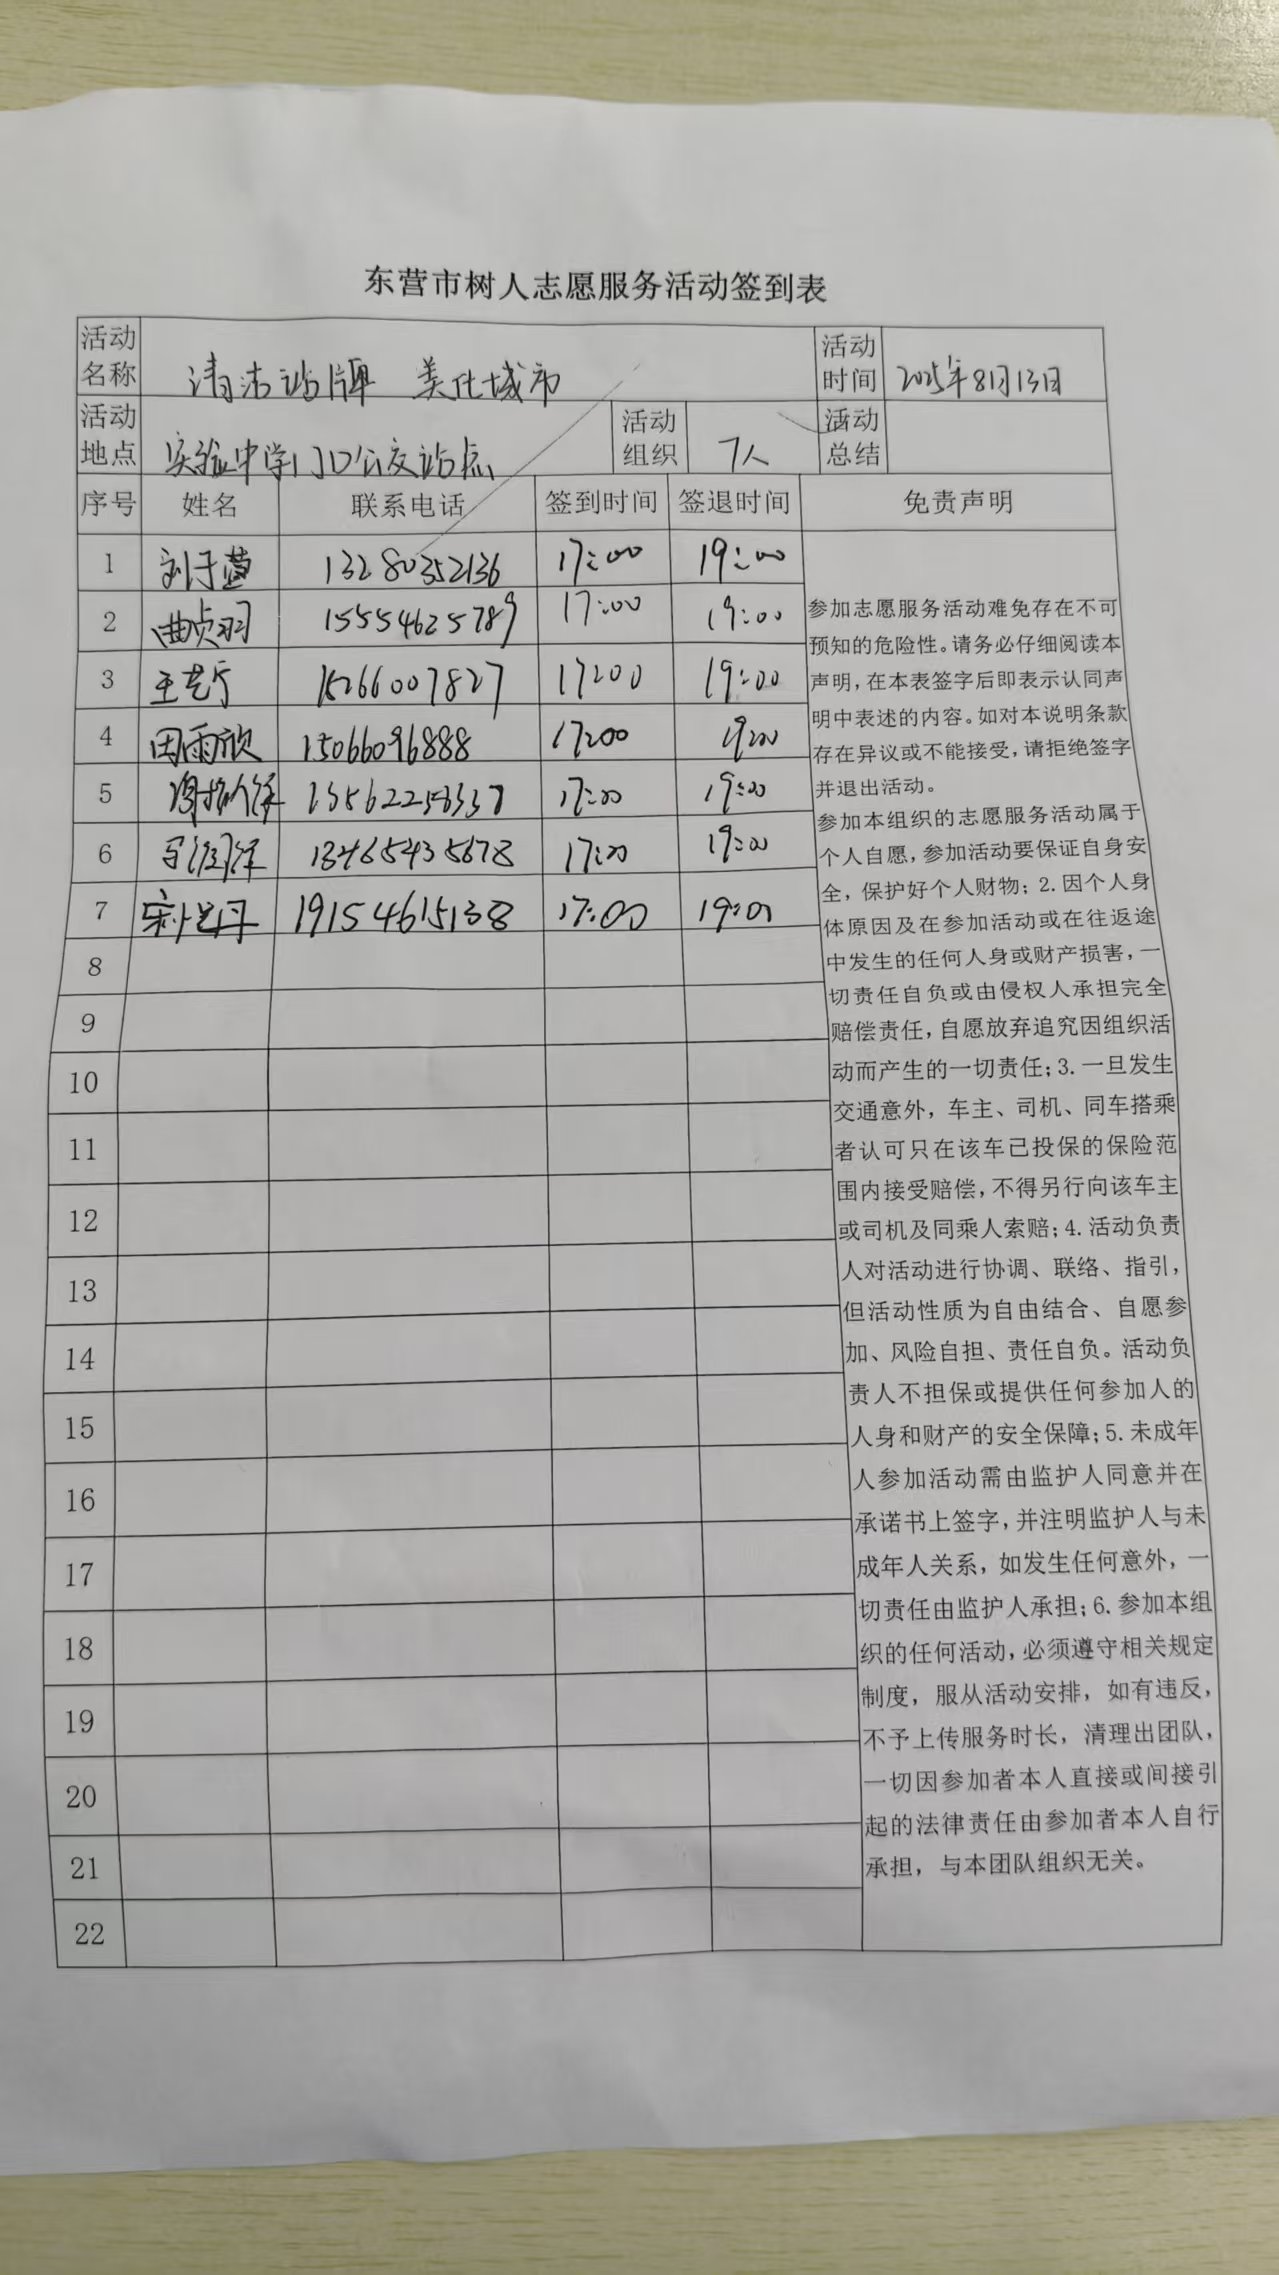 东营市树人志愿服务活动签到表
活动名称 清洁站牌 美化城市 活动时间 2025年8月13日
活动地点 实验中学门口公交站点 活动组织 7人 活动总结
序号 姓名 联系电话 签到时间 签退时间 免责声明
1 刘于萱 13280352136 17:00 19:00
2 曲贞羽 15554625789 17:00 19:00
3 王艺宁 15266007827 17:00 19:00
4 田雨欣 15066096888 17:00 19:00
5 13562256337 17:00 19:00
6 13465435678 17:00 19:00
7 19154615138 17:00 19:00
8
9
10
11
12
13
14
15
16
17
18
19
20
21
22
参加志愿服务活动难免存在不可
预知的危险性。请务必仔细阅读本
声明，在本表签字后即表示认同声
明中表述的内容。如对本说明条款
存在异议或不能接受，请拒绝签字
并退出活动。
参加本组织的志愿服务活动属于
个人自愿，参加活动要保证自身安
全，保护好个人财物；2.因个人身
体原因及在参加活动或在往返途
中发生的任何人身或财产损害，一
切责任自负或由侵权人承担完全
赔偿责任，自愿放弃追究因组织活
动而产生的一切责任；3.一旦发生
交通意外，车主、司机、同车搭乘
者认可只在该车已投保的保险范
围内接受赔偿，不得另行向该车主
或司机及同乘人索赔；4.活动负责
人对活动进行协调、联络、指引，
但活动性质为自由结合、自愿参
加、风险自担、责任自负。活动负
责人不担保或提供任何参加人的
人身和财产的安全保障；5.未成年
人参加活动需由监护人同意并在
承诺书上签字，并注明监护人与未
成年人关系，如发生任何意外，一
切责任由监护人承担；6.参加本组
织的任何活动，必须遵守相关规定
制度，服从活动安排，如有违反，
不予上传服务时长，清理出团队，
一切因参加者本人直接或间接引
起的法律责任由参加者本人自行
承担，与本团队组织无关。